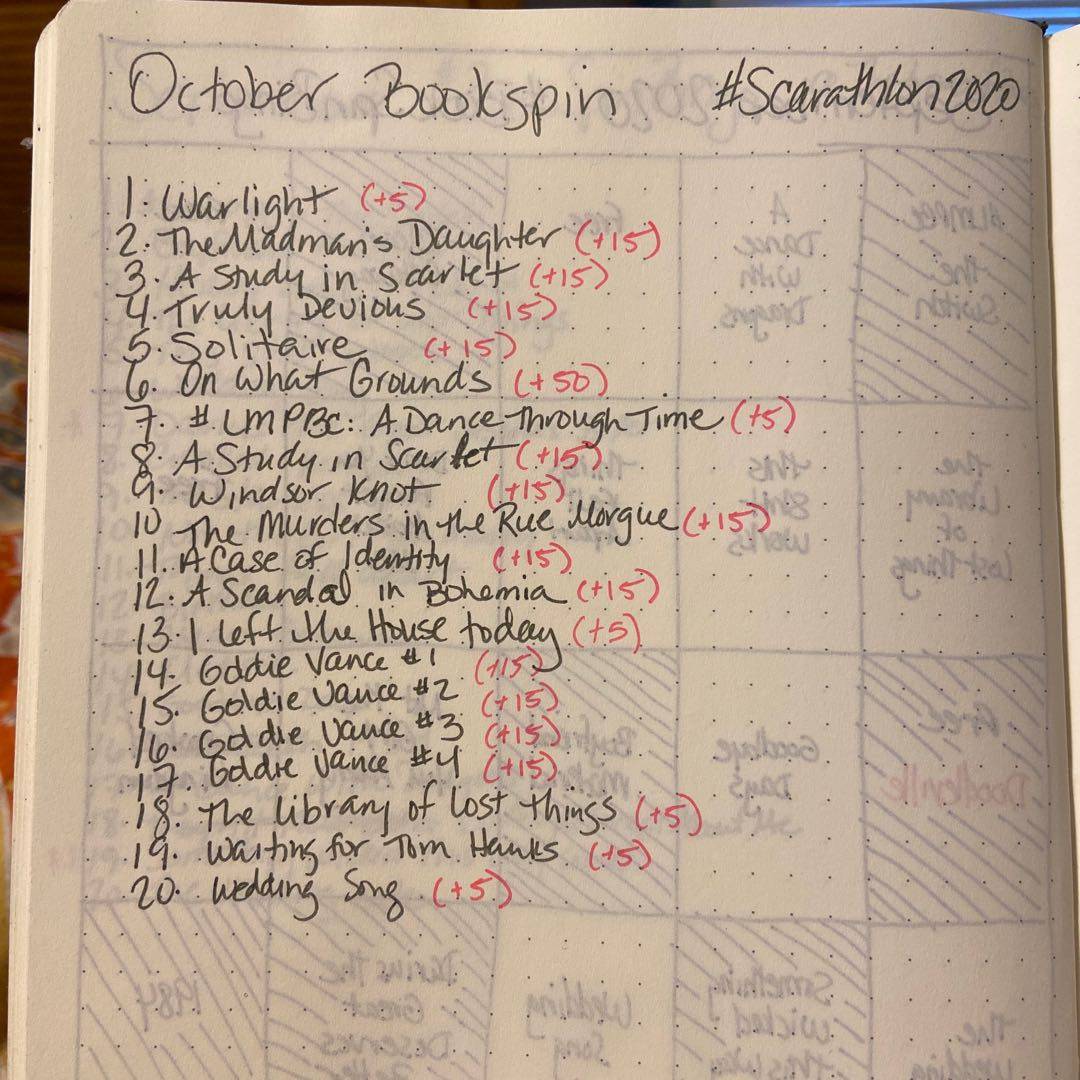 October Bookspin #Scarathlon2020
1. Warlight (+5)
2. The Madman's Daughter (+15)
3. A Study in Scarlet (+15)
4. Truly Devious (+15)
5. Solitaire (+15)
6. On What Grounds (+50)
7. #LMPBC: A Dance Through Time (+5)
8. A Study in Scarlet (+15)
9. Windsor Knot (+15)
10 The Murders in the Rue Morgue (+15)
11. A Case of Identity (+15)
12. A Scandal in Bohemia (+15)
13. I left the House today (+5)
14. Goldie Vance #1 (+15)
15. Goldie Vance #2 (+15)
16. Goldie Vance #3 (+15)
17. Goldie Vance #4 (+15)
18. The Library of Lost Things (+5)
19. Waiting for Tom Hanks (+5)
20. Wedding Song (+5)